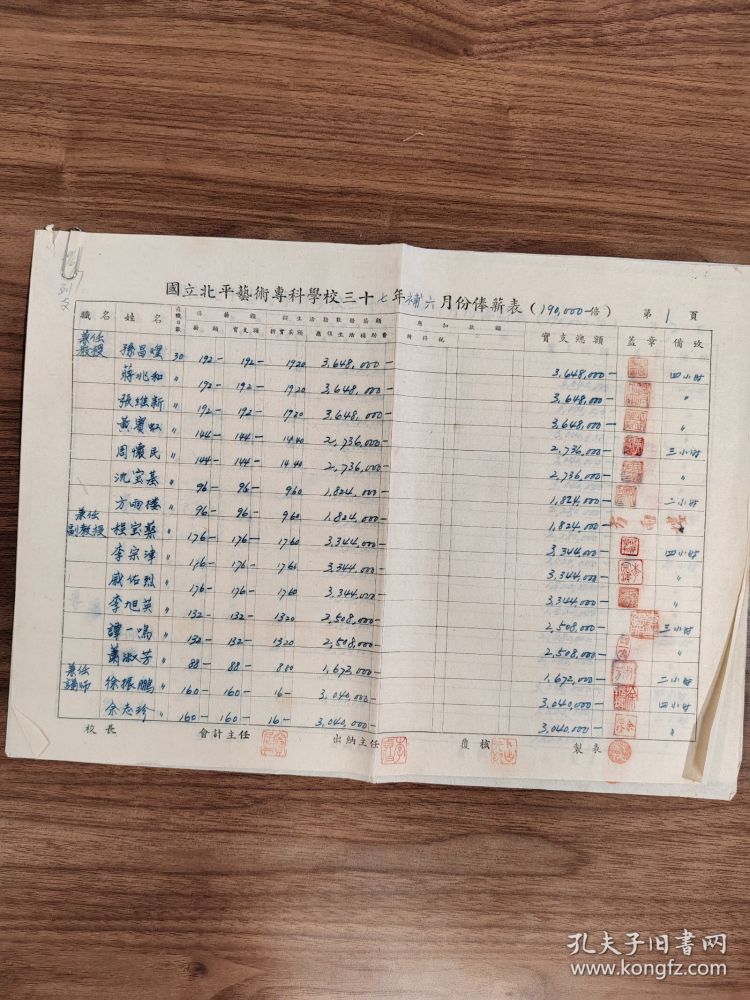 列支
國立北平藝術專科學校三十七年補六月份俸薪表（190,000-倍） 第1頁
職名 姓名 在職日數 俸薪額 照生活指數發給薪額 應扣款額 實支總額 蓋章 備攷
薪額 實支額 折實薪額 應領生活補助費 所得稅
兼任教授 孫昌煌 30 192- 192- 1920 3,648,000- 3,648,000- 四小時
蔣兆和 〃 192- 192- 1920 3,648,000- 3,648,000- 〃
張維新 〃 192- 192- 1920 3,648,000- 3,648,000- 〃
黃賓虹 〃 144- 144- 1440 2,736,000- 2,736,000- 三小時
周懷民 〃 144- 144- 1440 2,736,000- 2,736,000- 〃
沈宝基 〃 96- 96- 960 1,824,000- 1,824,000- 二小時
方雨樓 〃 96- 96- 960 1,824,000- 1,824,000- 方雨樓 〃
兼任副教授 程宝蓁 〃 176- 176- 1760 3,344,000- 3,344,000- 四小時
李宗津 〃 176- 176- 1760 3,344,000- 3,344,000- 〃
戚佑烈 〃 176- 176- 1760 3,344,000- 3,344,000- 〃
李旭英 〃 132- 132- 1320 2,508,000- 2,508,000- 三小時
譚一鳴 〃 132- 132- 1320 2,508,000- 2,508,000- 〃
蕭淑芳 〃 88- 88- 880 1,672,000- 1,672,000- 二小時
兼任講師 徐振鵬 〃 160- 160- 16- 3,040,000- 3,040,000- 四小時
余志珍 〃 160- 160- 16- 3,040,000- 3,040,000- 〃
校長 會計主任 出納主任 覆核 製表
孔夫子旧书网
www.kongfz.com